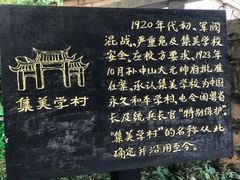 1920年代初，军阀
混战，严重危及集美学校
安全。应校方要求，1923年
10月孙中山大元帅府批准
在案，承认集美学校为中国
永久和平学村，电令闽粤省
长及统兵长官“特别保护”。
“集美学村”的名称从此
确定并沿用至今。
集美学村